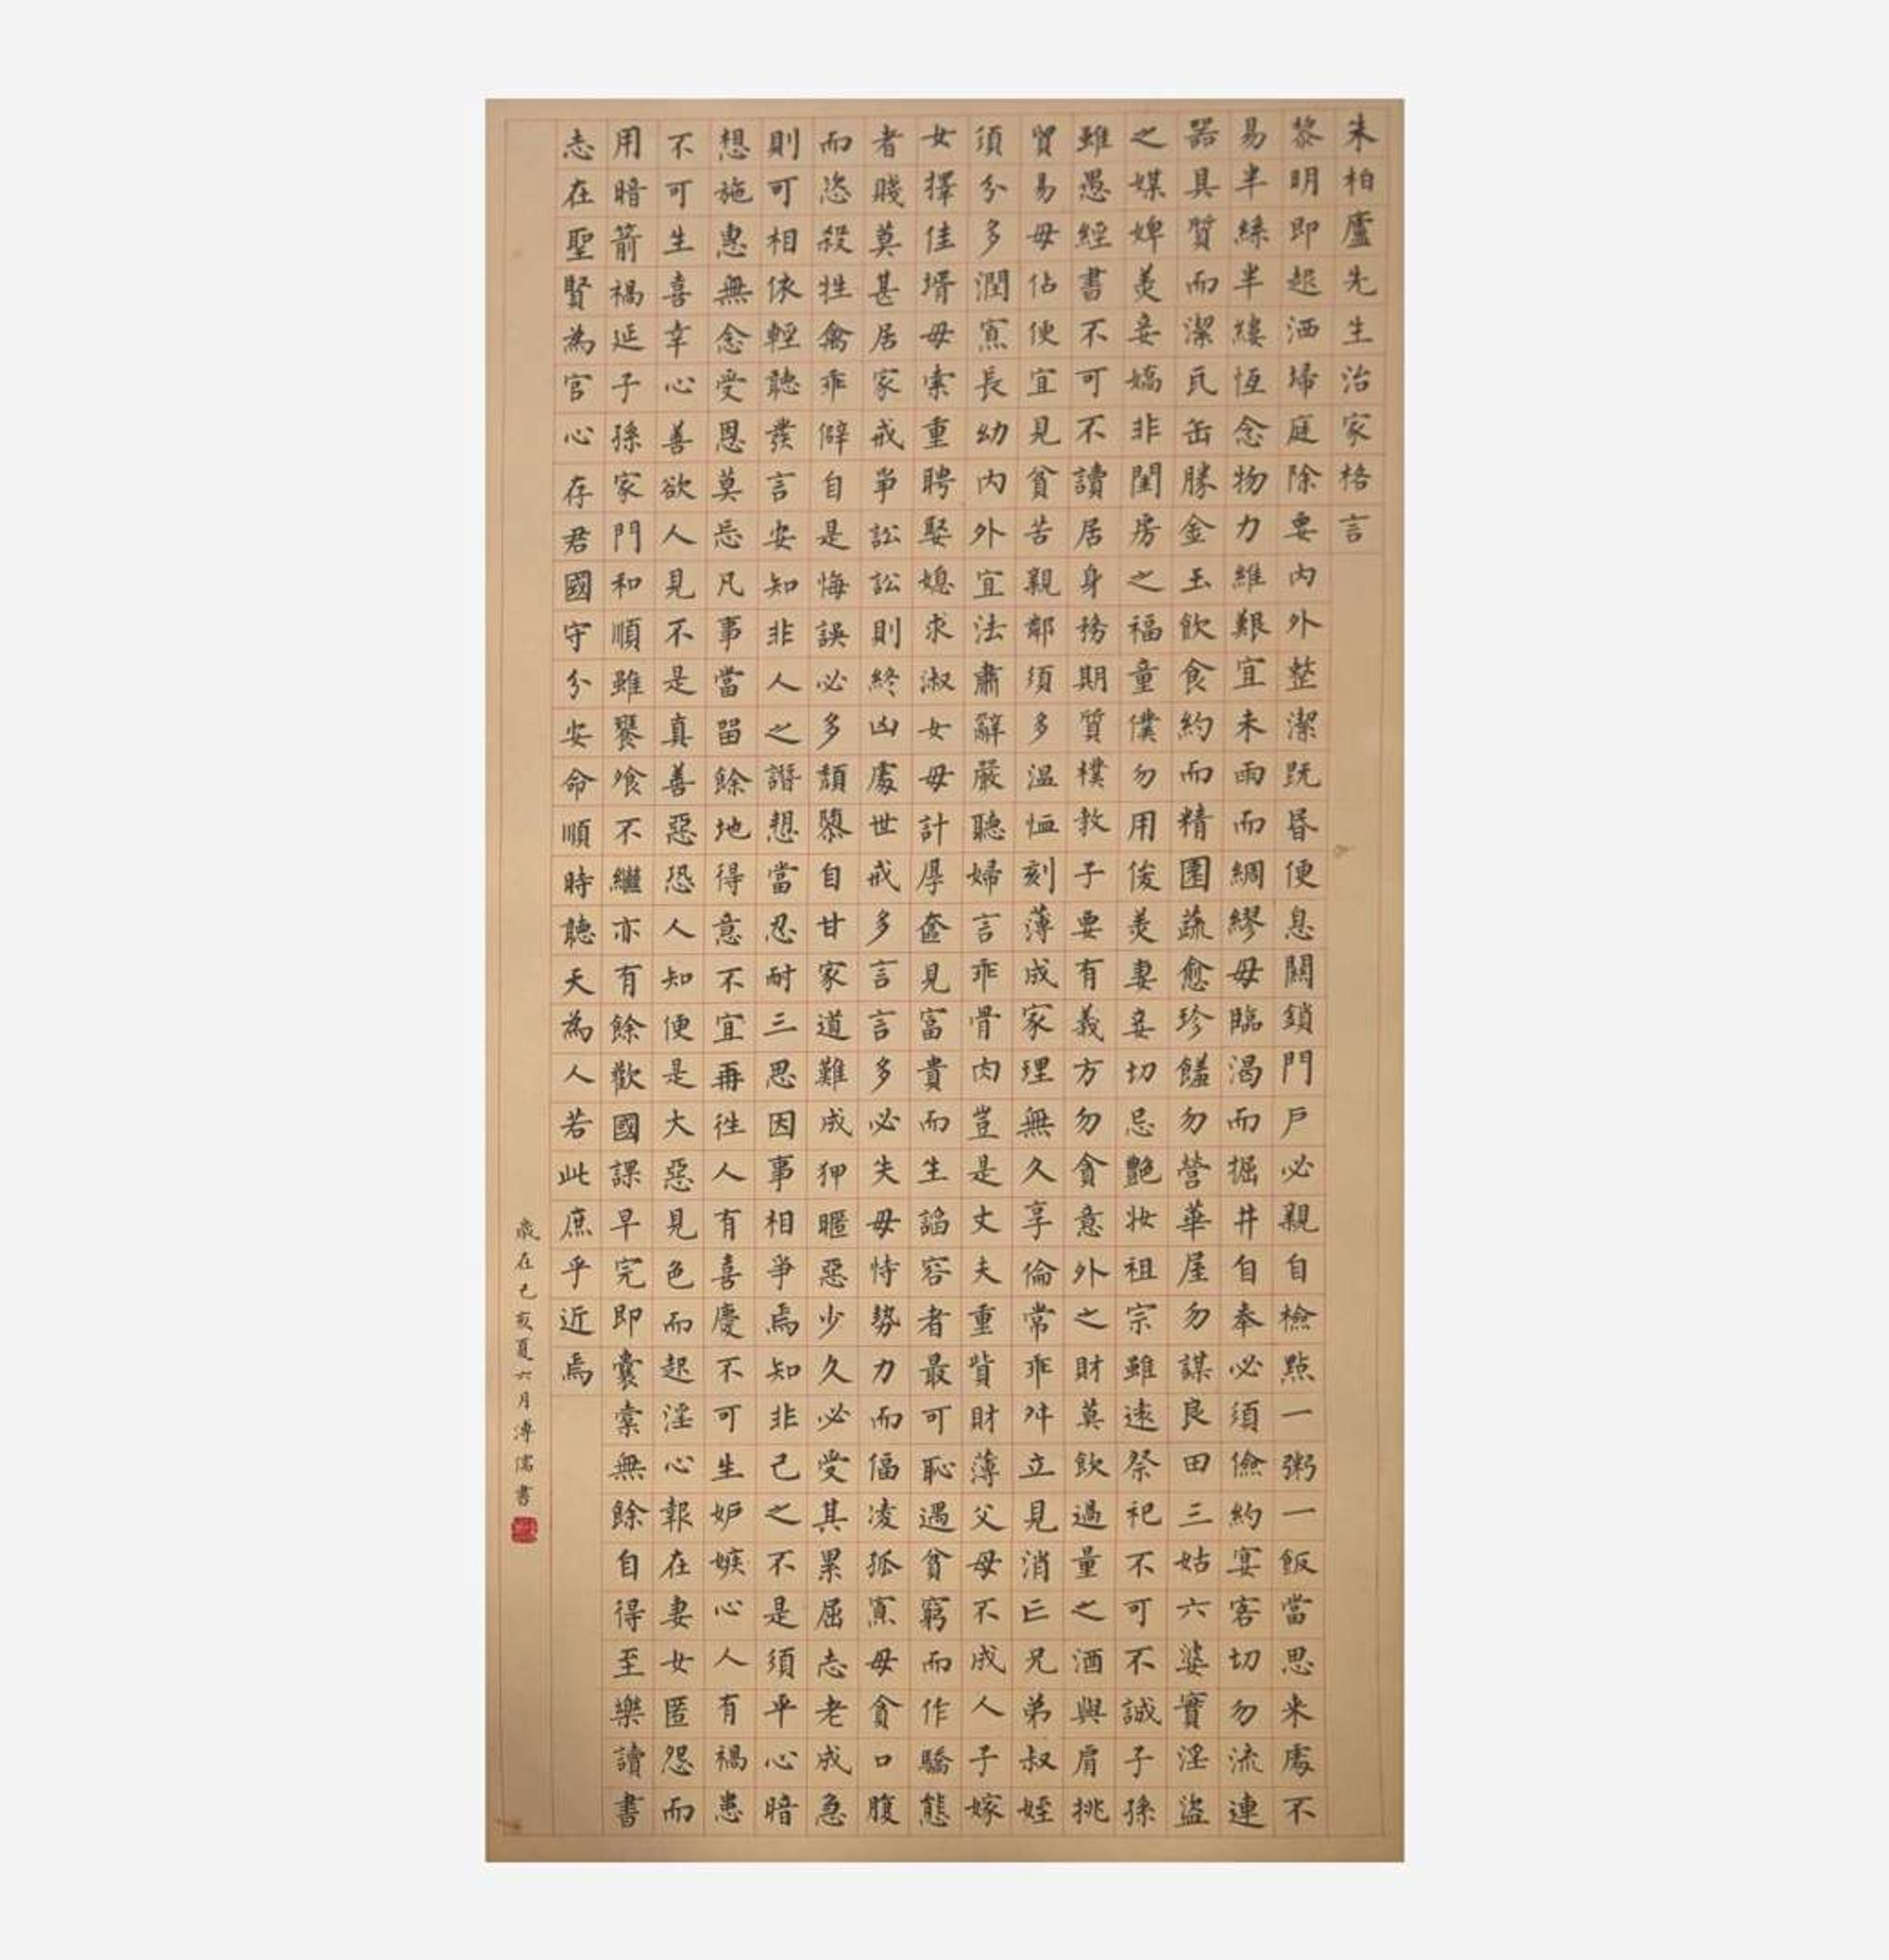 朱柏廬先生治家格言
黎明即起洒埽庭除要內外整潔既昏便息關鎖門戶必親自檢點一粥一飯當思来處不
易半絲半縷恆念物力維艱宜未雨而綢繆毋臨渴而掘井自奉必須儉約宴客切勿流連
器具質而潔瓦缶勝金玉飲食約而精園蔬愈珍饈勿營華屋勿謀良田三姑六婆實淫盜
之媒婢美妾嬌非閨房之福童僕勿用俊美妻妾切忌艷妝祖宗雖遠祭祀不可不誠子孫
雖愚經書不可不讀居身務期質樸教子要有義方勿貪意外之財莫飲過量之酒與肩挑
貿易毋佔便宜見貧苦親鄰須多温恤刻薄成家理無久享倫常乖舛立見消亡兄弟叔姪
須分多潤寡長幼內外宜法肅辭嚴聽婦言乖骨肉豈是丈夫重貲財薄父母不成人子嫁
女擇佳壻毋索重聘娶媳求淑女毋計厚奩見富貴而生諂容者最可恥遇貧窮而作驕態
者賤莫甚居家戒爭訟訟則終凶處世戒多言言多必失毋恃勢力而偪凌孤寡毋貪口腹
而恣殺牲禽乖僻自是悔誤必多頹隳自甘家道難成狎暱惡少久必受其累屈志老成急
則可相依輕聽發言安知非人之譖愬當忍耐三思因事相爭焉知非己之不是須平心暗
想施惠無念受恩莫忘凡事當留餘地得意不宜再往人有喜慶不可生妒嫉心人有禍患
不可生喜幸心善欲人見不是真善惡恐人知便是大惡見色而起淫心報在妻女匿怨而
用暗箭禍延子孫家門和順雖饔飧不繼亦有餘歡國課早完即囊橐無餘自得至樂讀書
志在聖賢為官心存君國守分安命順時聽天為人若此庶乎近焉
歲在己亥夏六月溥儒書